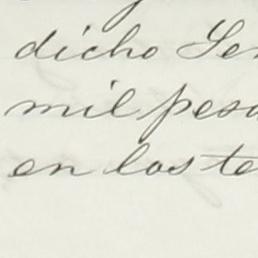 dicho Señ
mil peso
en los te